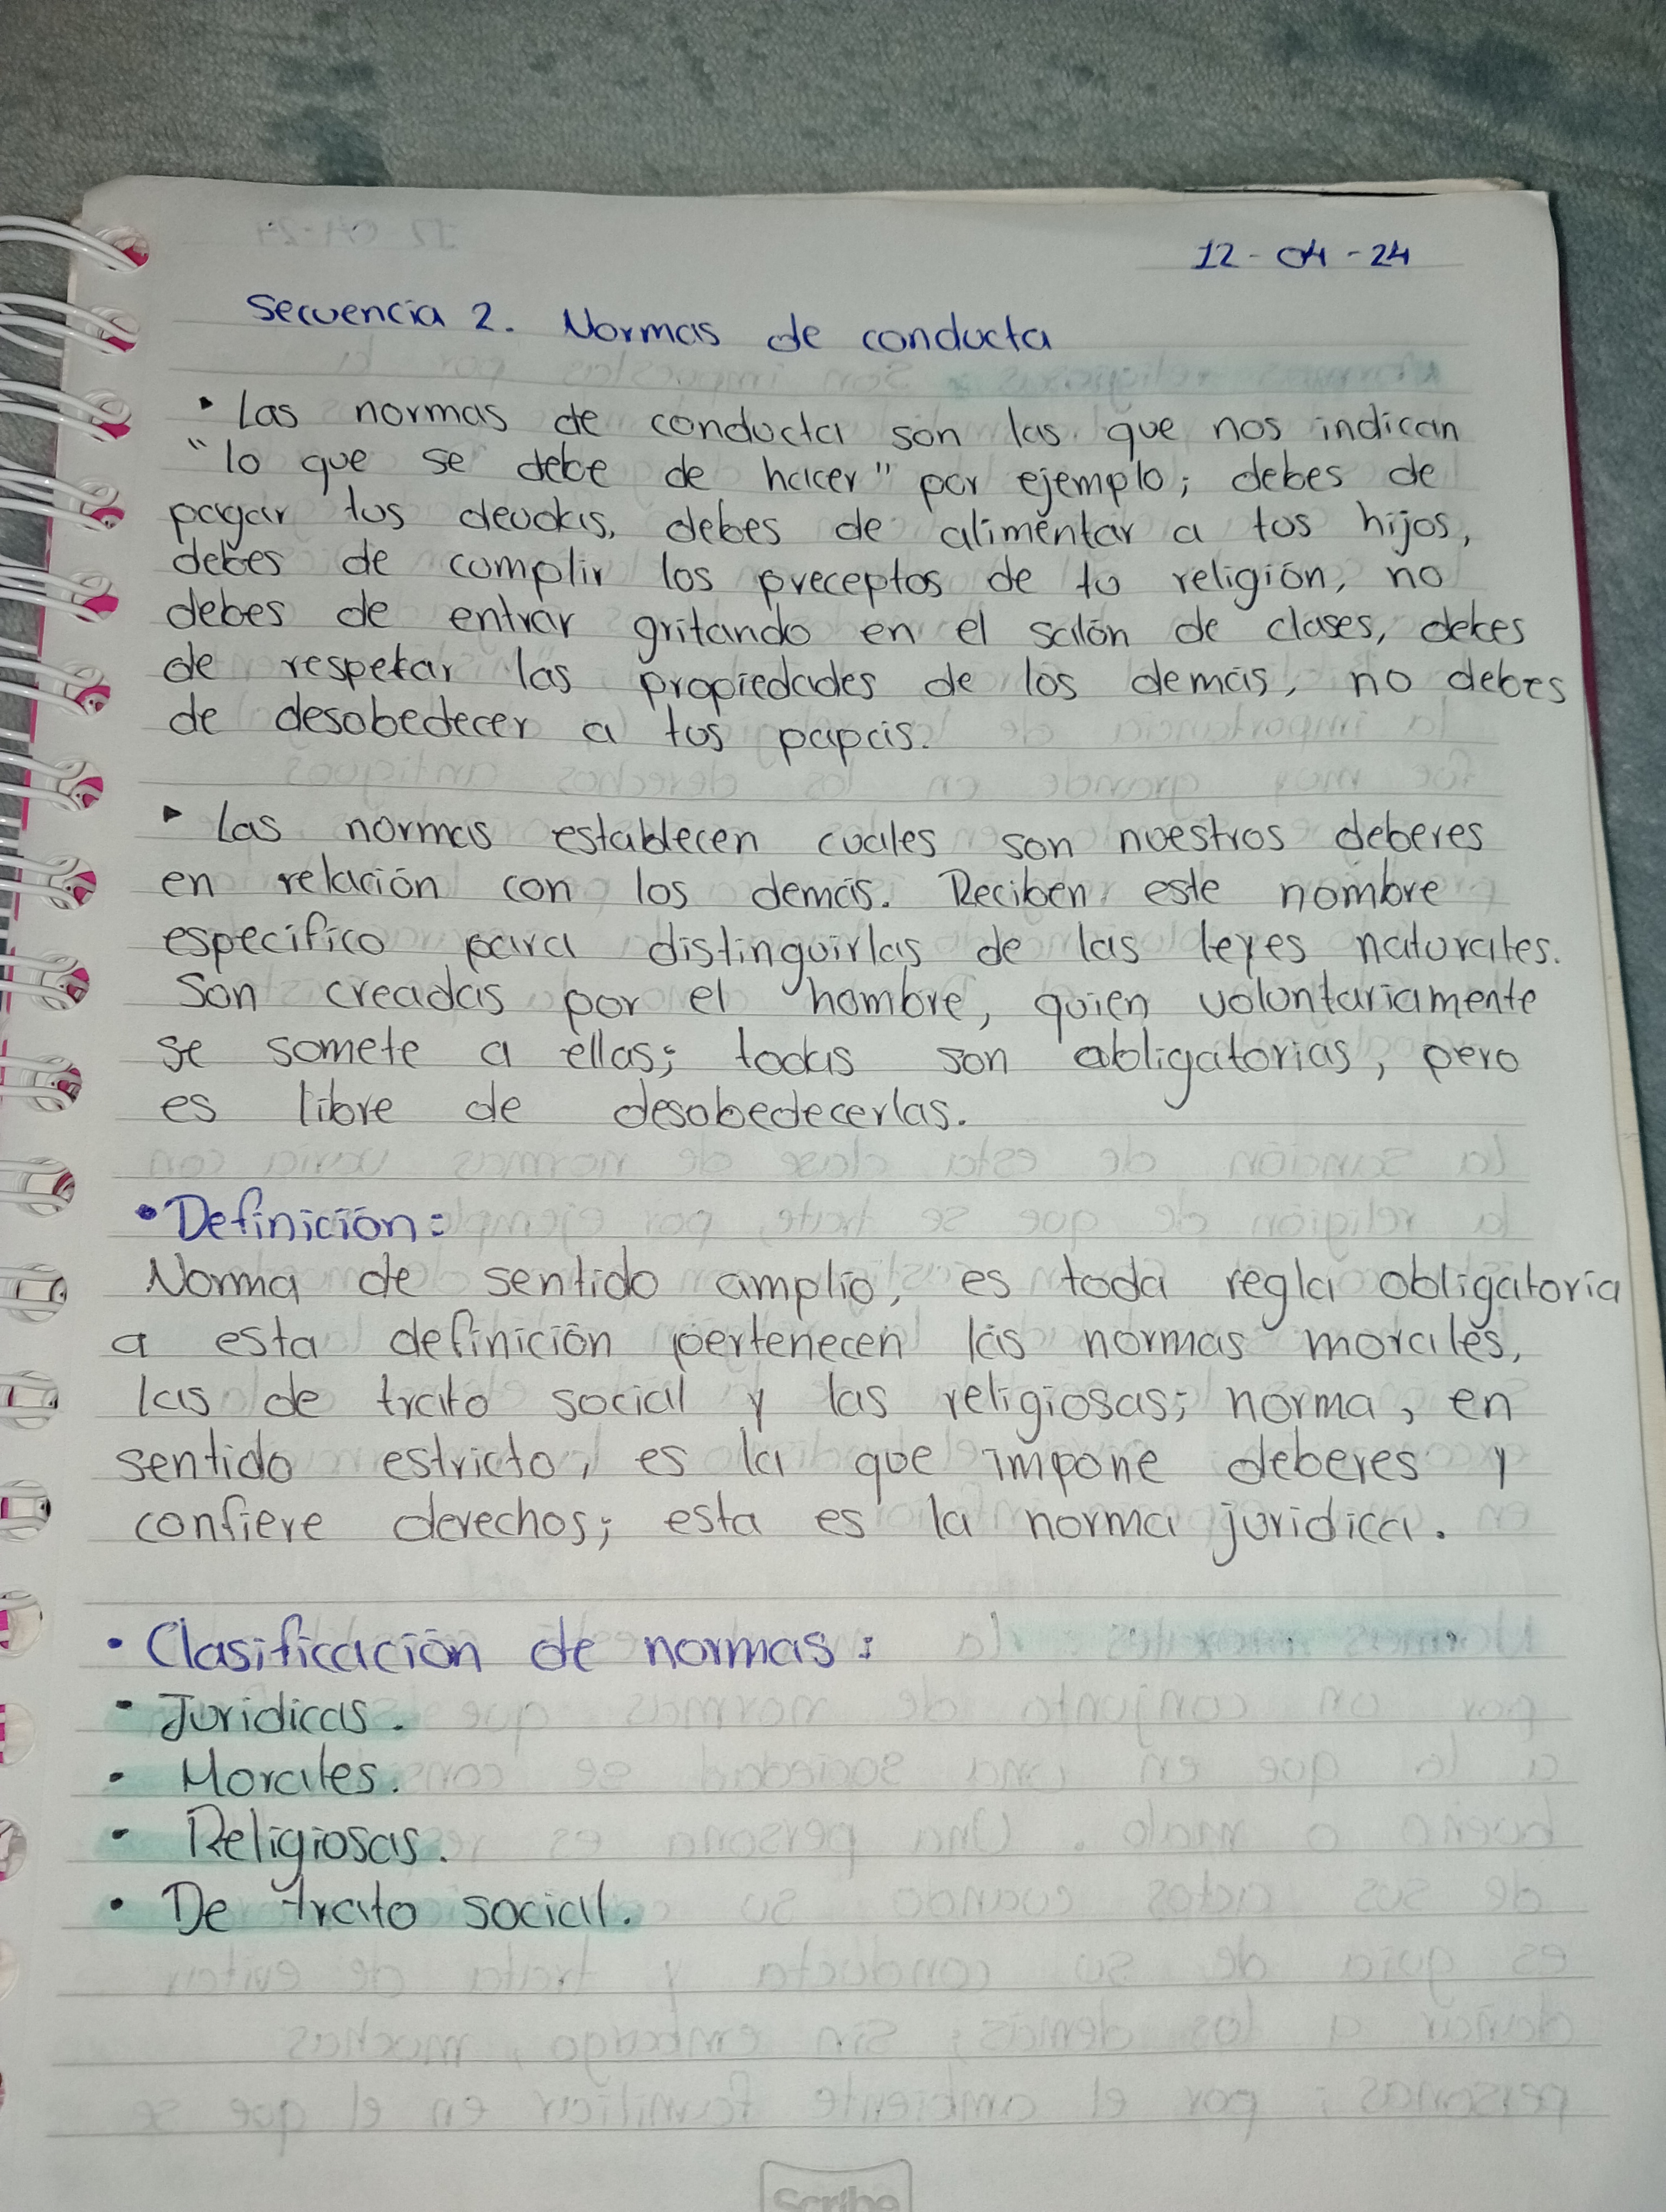 12-04-24
Secuencia 2. Normas de conducta
• Las normas de conducta son las que nos indican
"lo que se debe de hacer" por ejemplo; debes de
pagar tus deudas, debes de alimentar a tus hijos,
debes de cumplir los preceptos de tu religión, no
debes de entrar gritando en el salón de clases, debes
de respetar las propiedades de los demás, no debes
de desobedecer a tus papás.
▸ Las normas establecen cuales son nuestros deberes
en relación con los demás. Reciben este nombre
especifico para distinguirlas de las leyes naturales.
Son creadas por el hombre, quien voluntariamente
se somete a ellas; todas son obligatorias, pero
es libre de desobedecerlas.
• Definición:
Norma de sentido amplio, es toda regla obligatoria
a esta definición pertenecen las normas morales,
las de trato social y las religiosas; norma, en
sentido estricto, es la que impone deberes y
confiere derechos; esta es la norma juridica.
• Clasificación de normas:
• Juridicas.
• Morales.
• Religiosas.
• De trato social.
Scribe